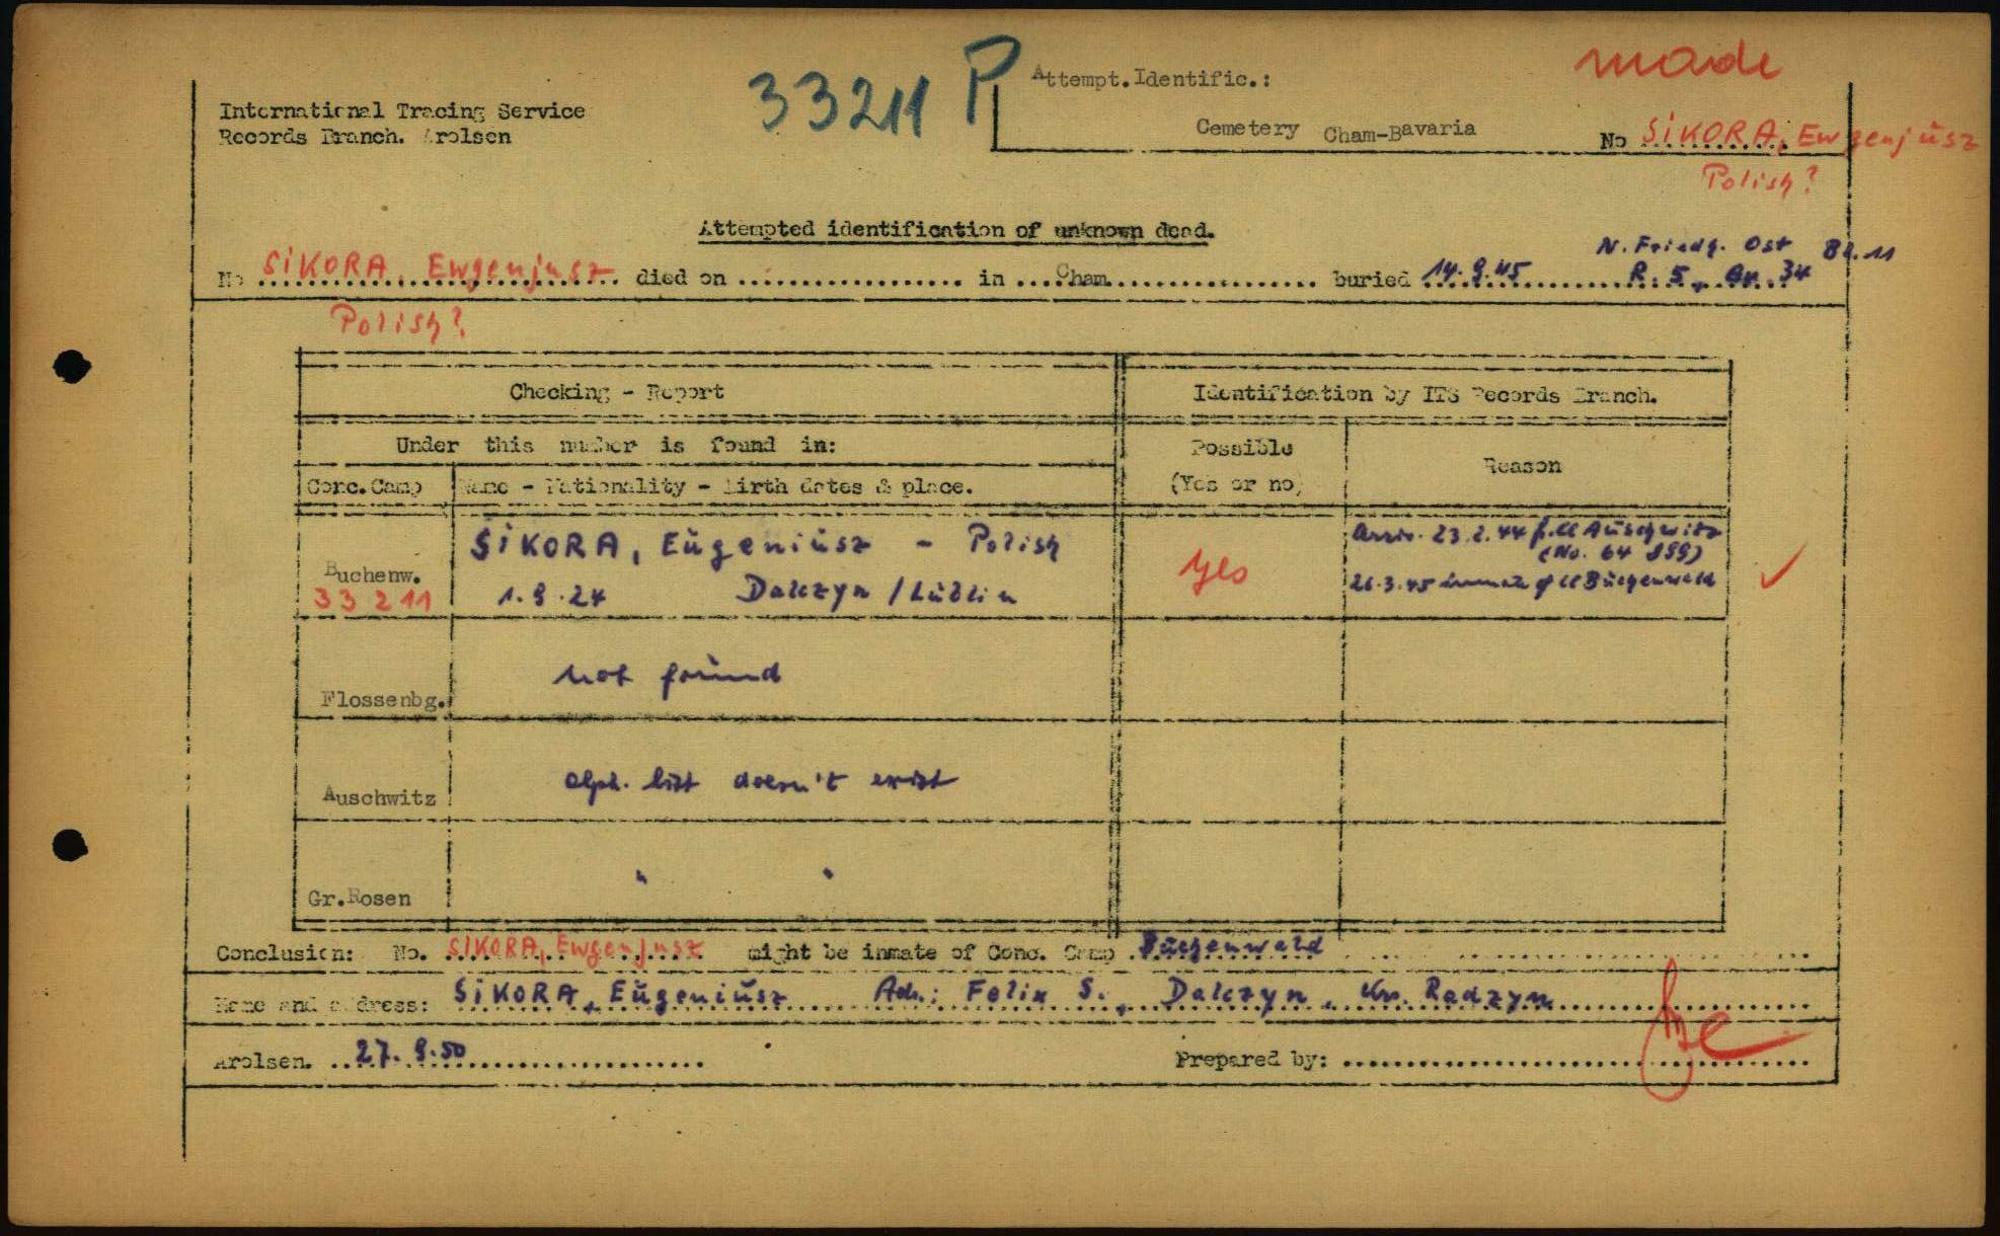 33211 P
Attempt.Identific.:
made
International Tracing Service
Records Branch. Arolsen
Cemetery Cham-Bavaria
No SIKORA, Ewgenjusz
Polish?
Attempted identification of unknown dead.
N. Friedh. Ost Bl. 11
No SIKORA, Ewgenjusz died on .................. in ....Cham.................. buried 14.9.45 R. 5, Gr. 34
Polish?
Checking - Report
Identification by ITS Records Branch.
Under this number is found in:
Possible
(Yes or no)
Reason
Conc.Camp
Name - Nationality - Birth dates & place.
Buchenw.
33 211
SIKORA, Eugeniusz - Polish
1.9.24 Dalczyn / Lublin
yes
Arriv. 23.2.44 f. CC Auschwitz
(No. 64 899)
26.3.45 inmate of CC Buchenwald
Flossenbg.
not found
Auschwitz
alph. list doesn't exist
Gr.Rosen
" "
Conclusion: No. SIKORA, Ewgenjusz might be inmate of Conc. Camp Buchenwald
Name and address: SIKORA, Eugeniusz Adr.: Felix S., Dalczyn, Kr. Radzyn
Arolsen. 27.9.50
Prepared by: